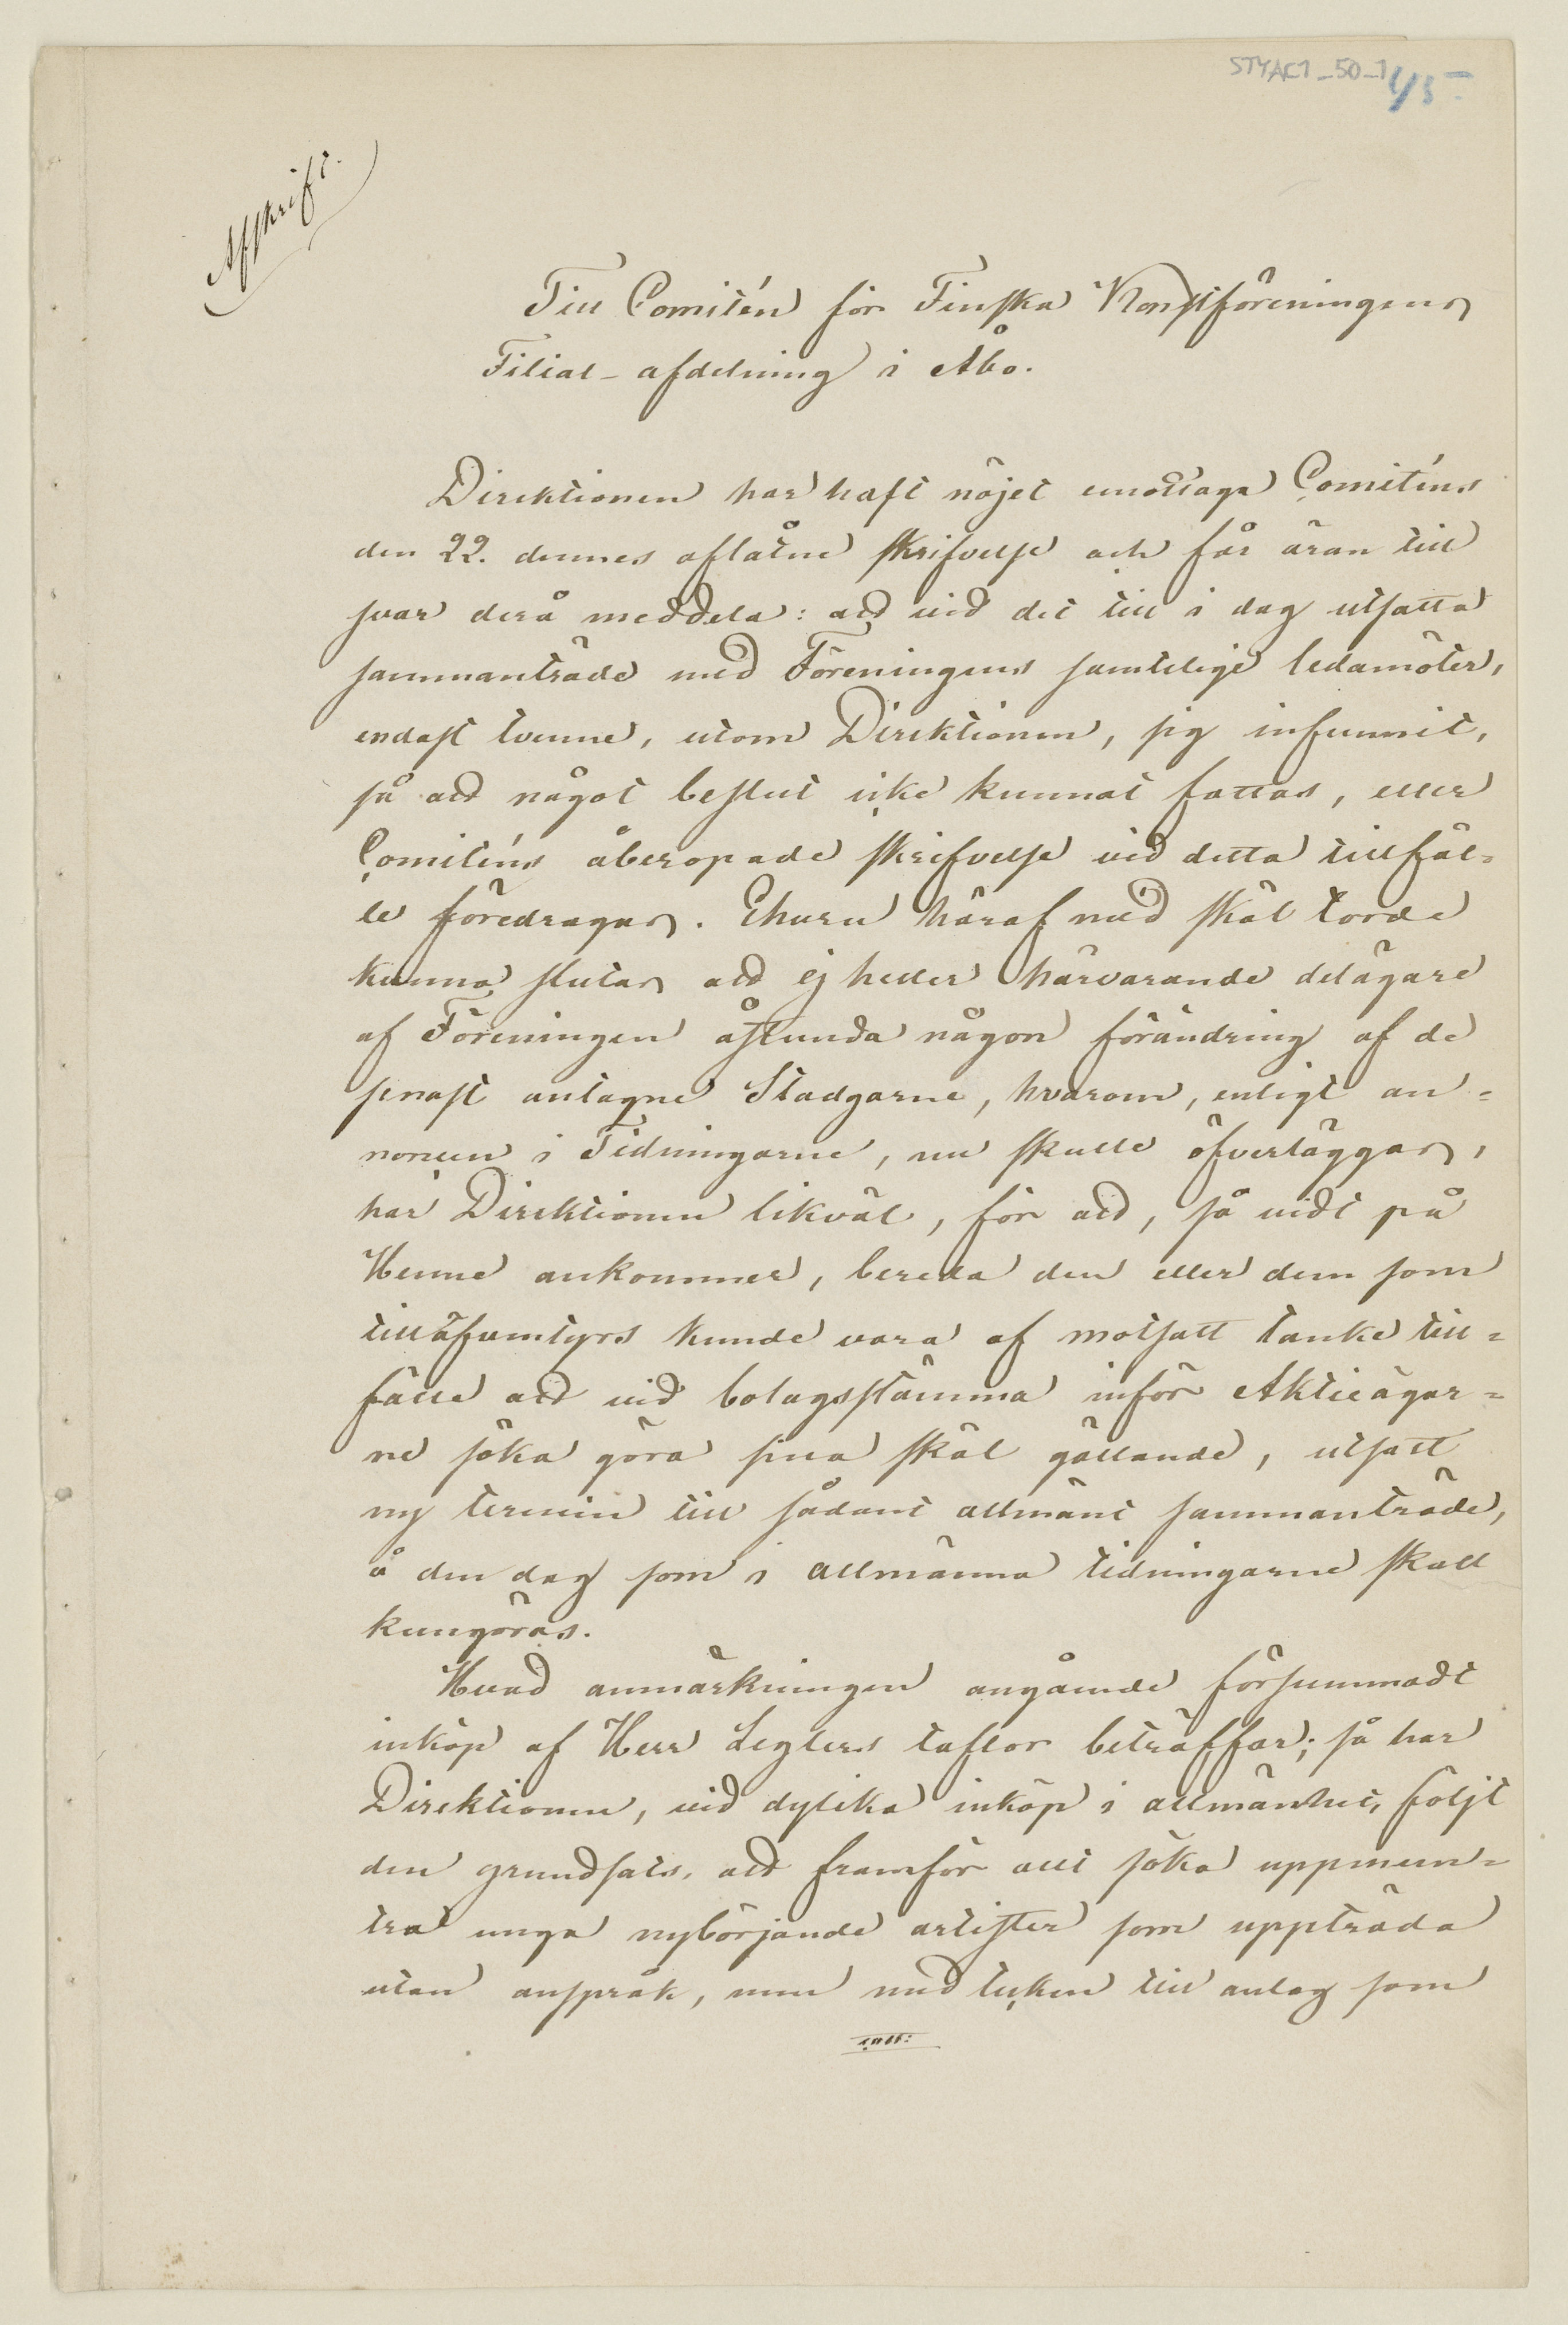 STYAC1_50_1
Afskrift.
Till Comitén för Finska Konstföreningens
Filial-afdelning i Åbo.
Direktionen har haft nöjet emottaga Comiténs
den 22. dennes aflåtne skrifvelse och får äran till
svar derå meddela: att vid det till i dag utsatta
sammanträde med Föreningens samtelige ledamöter,
endast tvenne, utom Direktionen, sig infunnit,
så att något beslut icke kunnat fattas, eller
Comiténs åberopade skrifvelse vid detta tillfäl=
le föredragas. Ehuru häraf med skäl torde
kunna slutas att ej heller härvarande delägare
af Föreningen åstunda någon förändring af de
senast antagne Stadgarne, hvarom, enligt an=
noncen i Tidningarne, nu skulle öfverläggas,
har Direktionen likväl, för att, så vidt på
Henne ankommer, bereda den eller dem som
tilläfventyrs kunde vara af motsatt tanke till=
fälle att vid bolagsstämma inför Aktieägar=
ne söka göra sina skäl gällande, utsatt
ny termin till sådant allmänt sammanträde,
å den dag som i allmänna tidningarne skall
kungöras.
Hvad anmärkningen angående försummadt
inköp af Herr Leglers taflor beträffar; så har
Direktionen, vid dylika inköp i allmänhet, följt
den grundsats, att framför allt söka uppmun=
tra unga nybörjande artister som uppträda
utan anspråk, men med tycken till anlag som